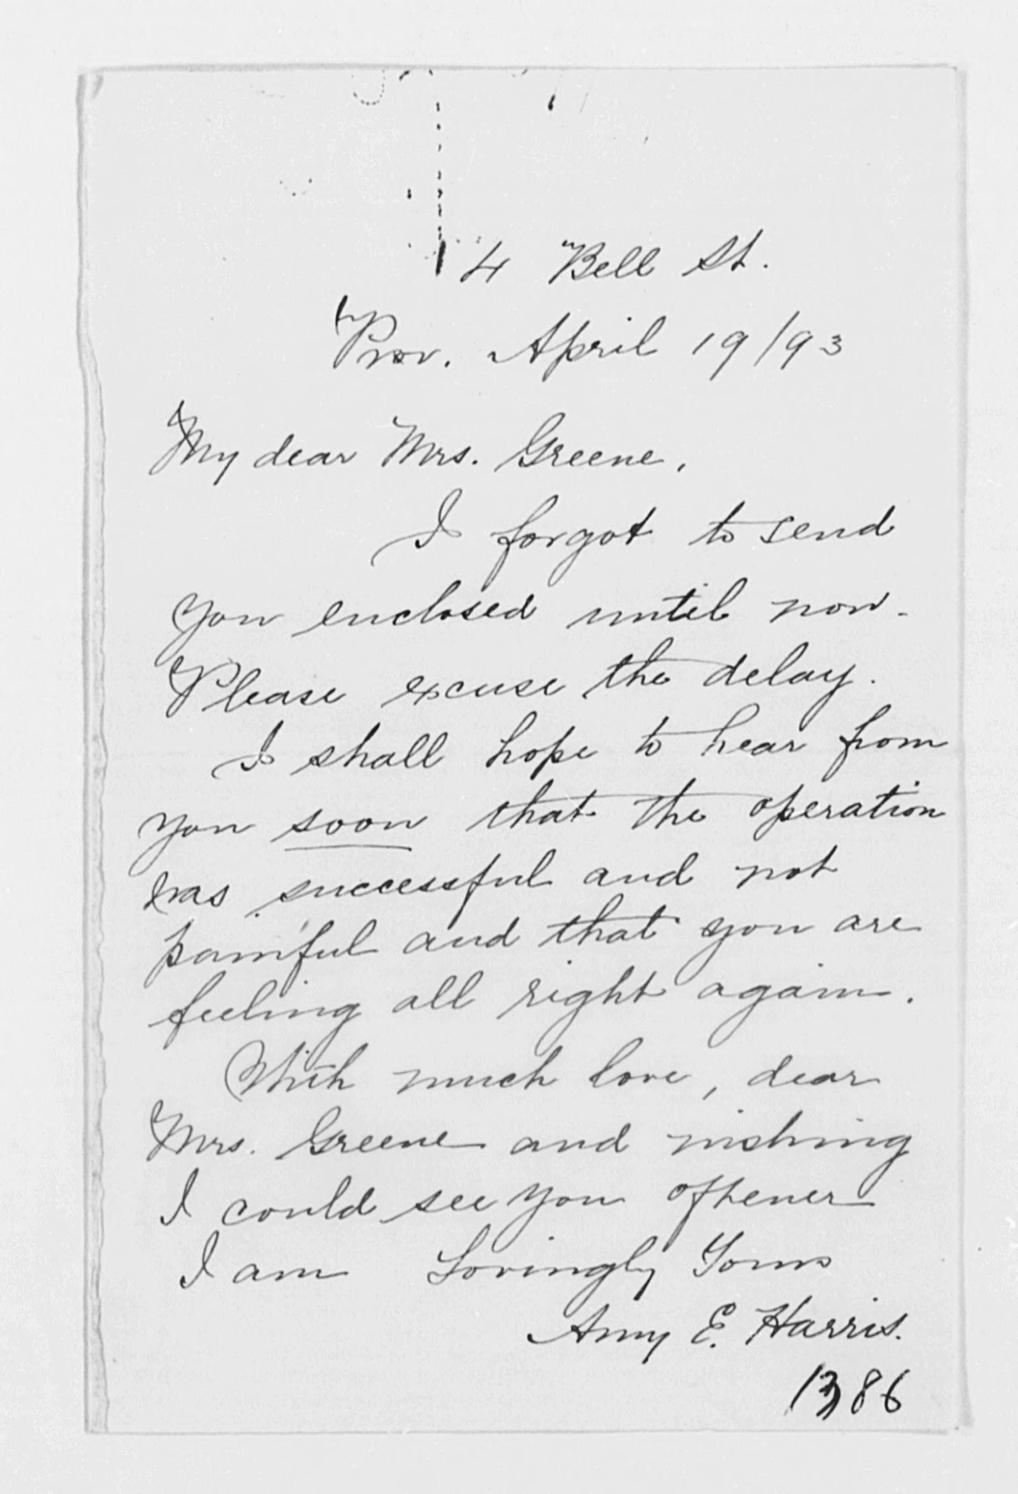 14 Bell St.
Prov. April 19/93
My dear Mrs. Greene,
I forgot to send
you enclosed until now.
Please excuse the delay.
I shall hope to hear from
you soon that the operation
was successful and not
painful and that you are
feeling all right again.
With much love, dear
Mrs. Greene and wishing
I could see you oftener
I am Lovingly Yours
Amy E. Harris.
1386